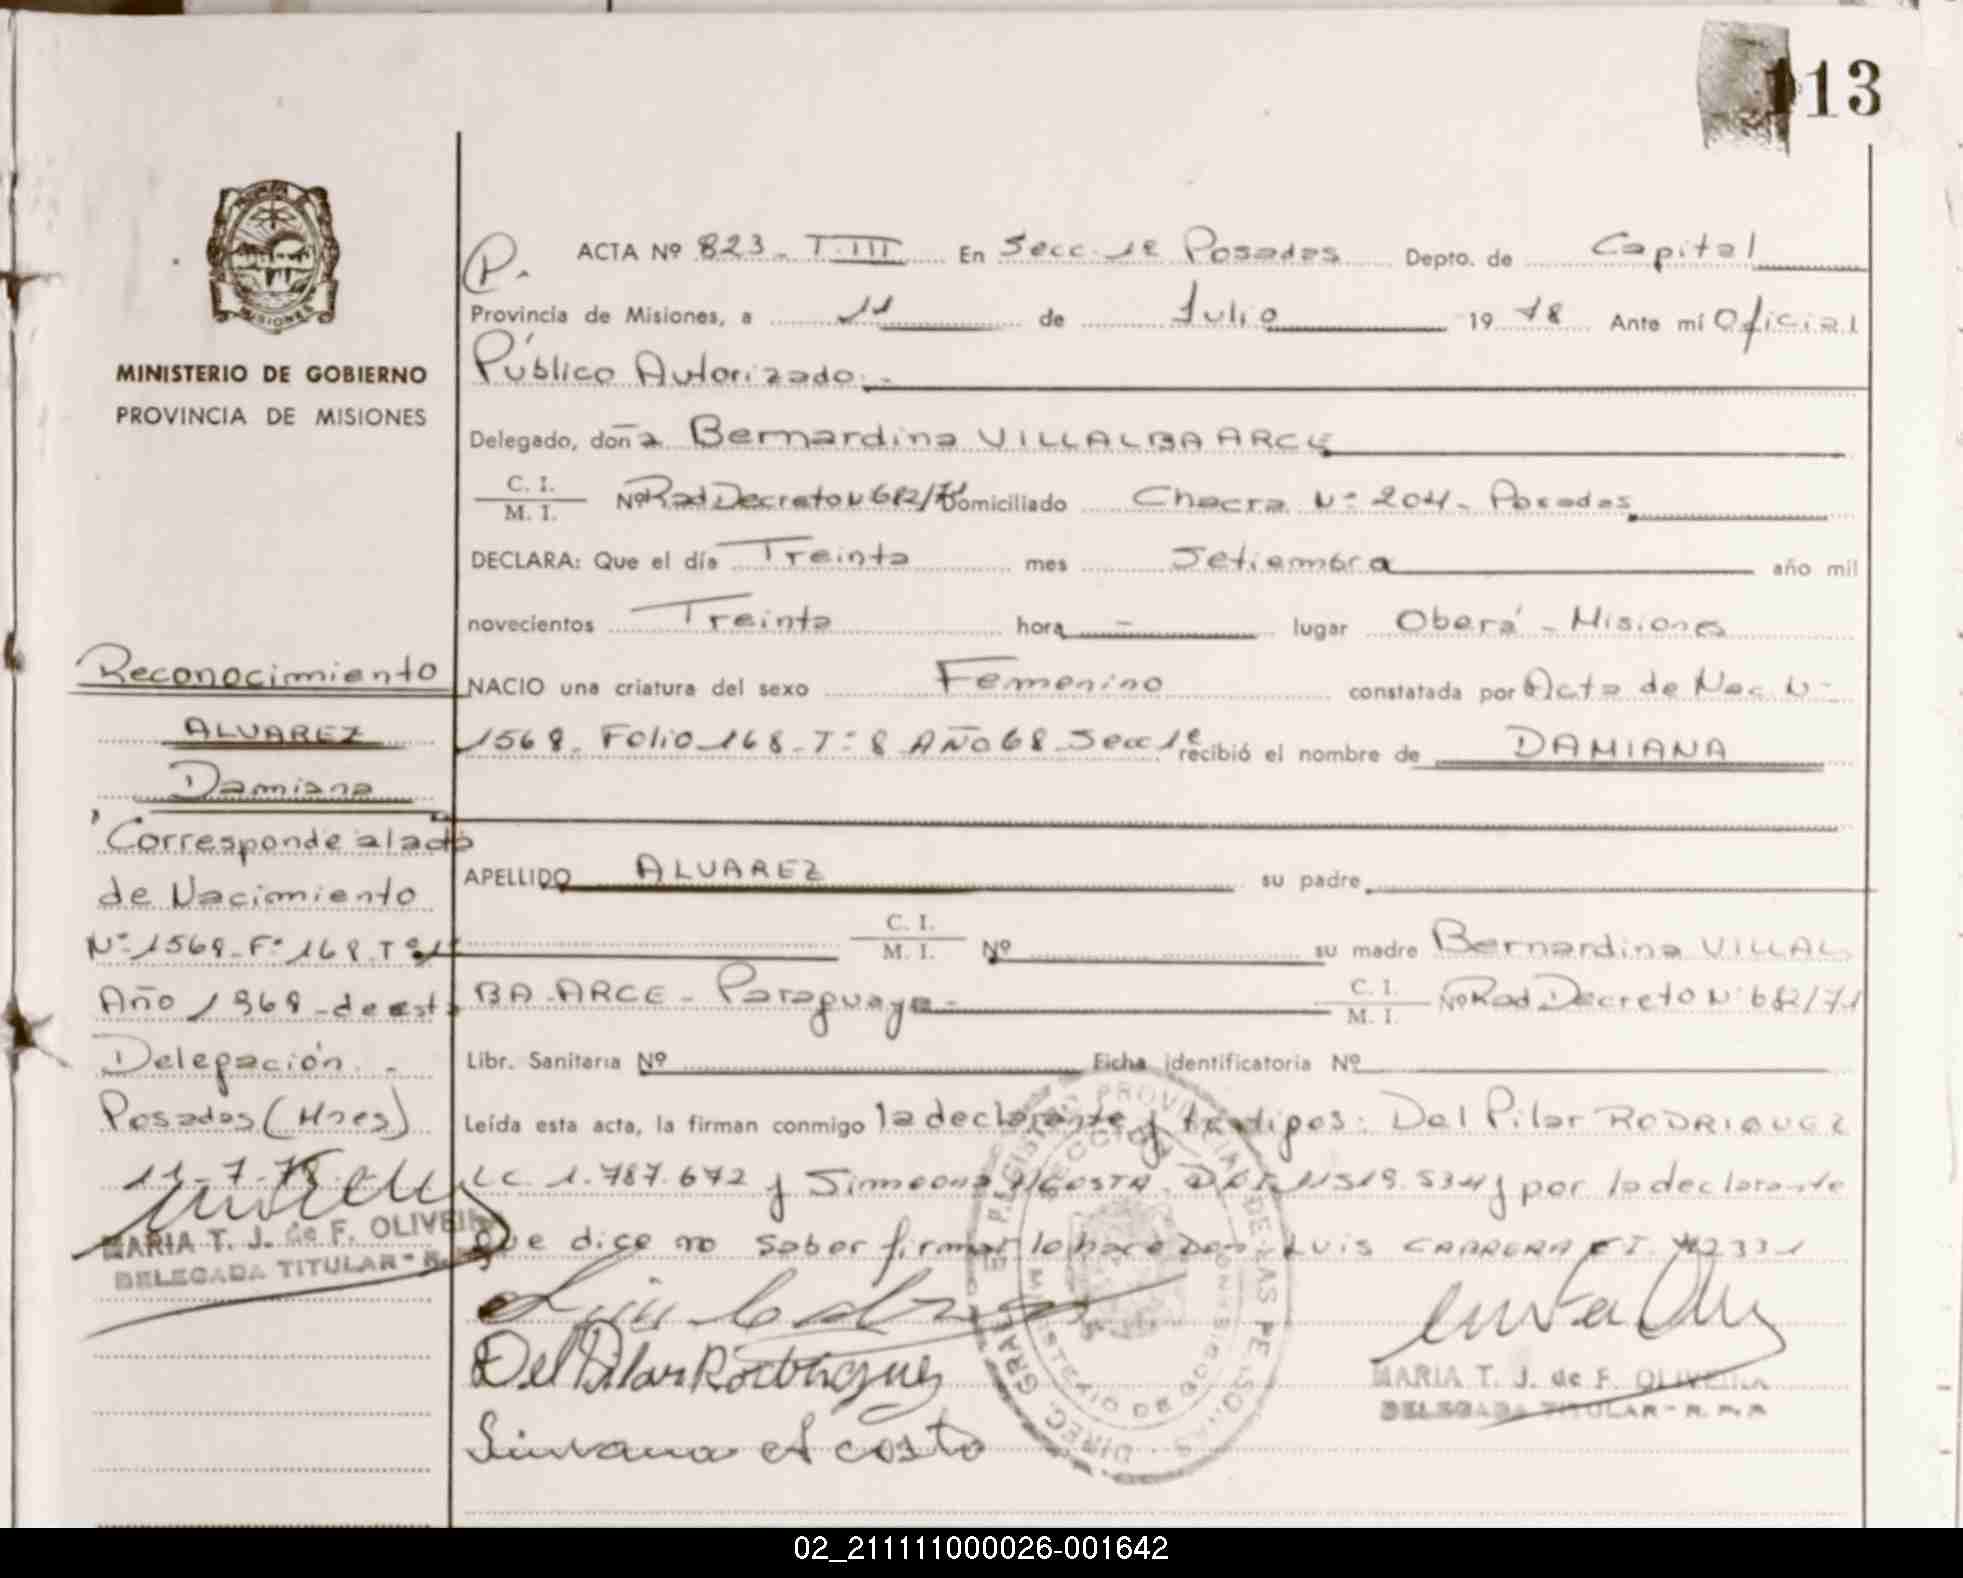 113
MISIONES
MINISTERIO DE GOBIERNO
PROVINCIA DE MISIONES
Reconocimiento
ALVAREZ
Damiana
Corresponde al acta
de Nacimiento
Nº 1568 - Fº 168. Tº
Año 1968 - de esta
Delegación . -
Posadas (Mnes)
11-7-78
MARIA T. J. de F. OLIVEIRA
DELEGADA TITULAR - R.
P. ACTA Nº 823 - T. III En Secc. 1ª Posadas Depto. de Capital
Provincia de Misiones, a 11 de Julio 1978 Ante mí Oficial
Público Autorizado. -
Delegado, doña Bernardina VILLALBA ARCE
C. I. / M. I. Nº Rad Decreto N 682/71 Domiciliado Chacra Nº 204 - Posadas
DECLARA: Que el día Treinta mes Setiembre año mil
novecientos Treinta hora - lugar Oberá - Misiones
NACIO una criatura del sexo Femenino constatada por Acta de Nac Nº
1568 - Folio 168 - Tº 8 AÑO 68 Secc 1ª recibió el nombre de DAMIANA
APELLIDO ALVAREZ su padre
C. I. / M. I. Nº su madre Bernardina VILLAL
BA - ARCE - Paraguaya - C. I. / M. I. Nº Rad Decreto Nº 682/71
Libr. Sanitaria Nº Ficha identificatoria Nº
Leída esta acta, la firman conmigo la declarante y testigos: Del Pilar RODRIGUEZ
LC 1.787.672 y Simeona ACOSTA 11519.534 y por la declarante
que dice no saber firmar lo hace don LUIS CABRERA CI
Del Pilar Rodriguez
MARIA T. J. de F. OLIVEIRA
DELEGADA TITULAR - R. P. P.
DIREC. GRAL. REGISTRO PROVINCIAL DE LAS PERSONAS
02_211111000026-001642